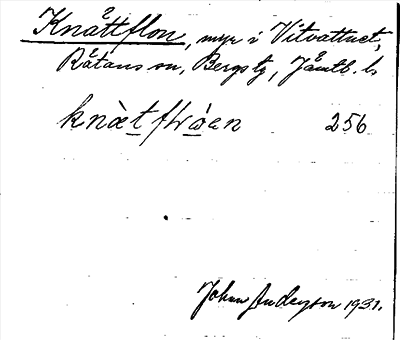 Knåttflon, myr i Vitvattnet,
Rätans sn, Bergs tg, Jämtl. l.
knætflóen 256
Johan Anderson 1931.